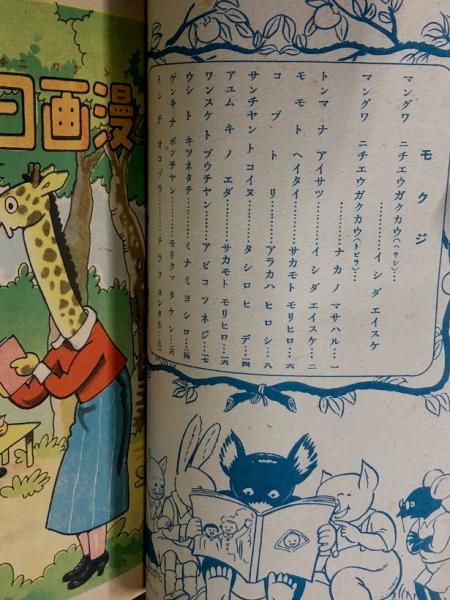 モクジ
マングワ ニチエウガクカウ(ヘウシ)…
イシダ エイスケ
マングワ ニチエウガクカウ(トビラ)…
………ナカノ マサハル…一
トンマナ アイサツ……イシダ エイスケ…二
モモト ヘイタイ…サカモト モリヒロ…六
コブトリ……アラカハ ヒロシ…八
サンチヤント コイヌ……タシロ ヒデ…一四
アユムキノ エダ…サカモト モリヒロ…一六
ワンスケト ブウチヤン……アビコツネジ…
ウシト キツネタチ……ミナミ ヨシロ…二四
ゲンキナ ボンチヤン……モリクマ タケシ…
テンチ オコゾウ……テラヲ ヨシタカ…
漫画日